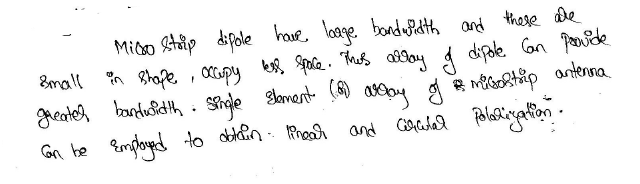 - Micro strip dipole have large bandwidth and these are
small in shape, occupy less space. Thus array of dipole can provide
greater bandwidth. single element (or) array of microstrip antenna
can be employed to obtain. linear and circular polarization.